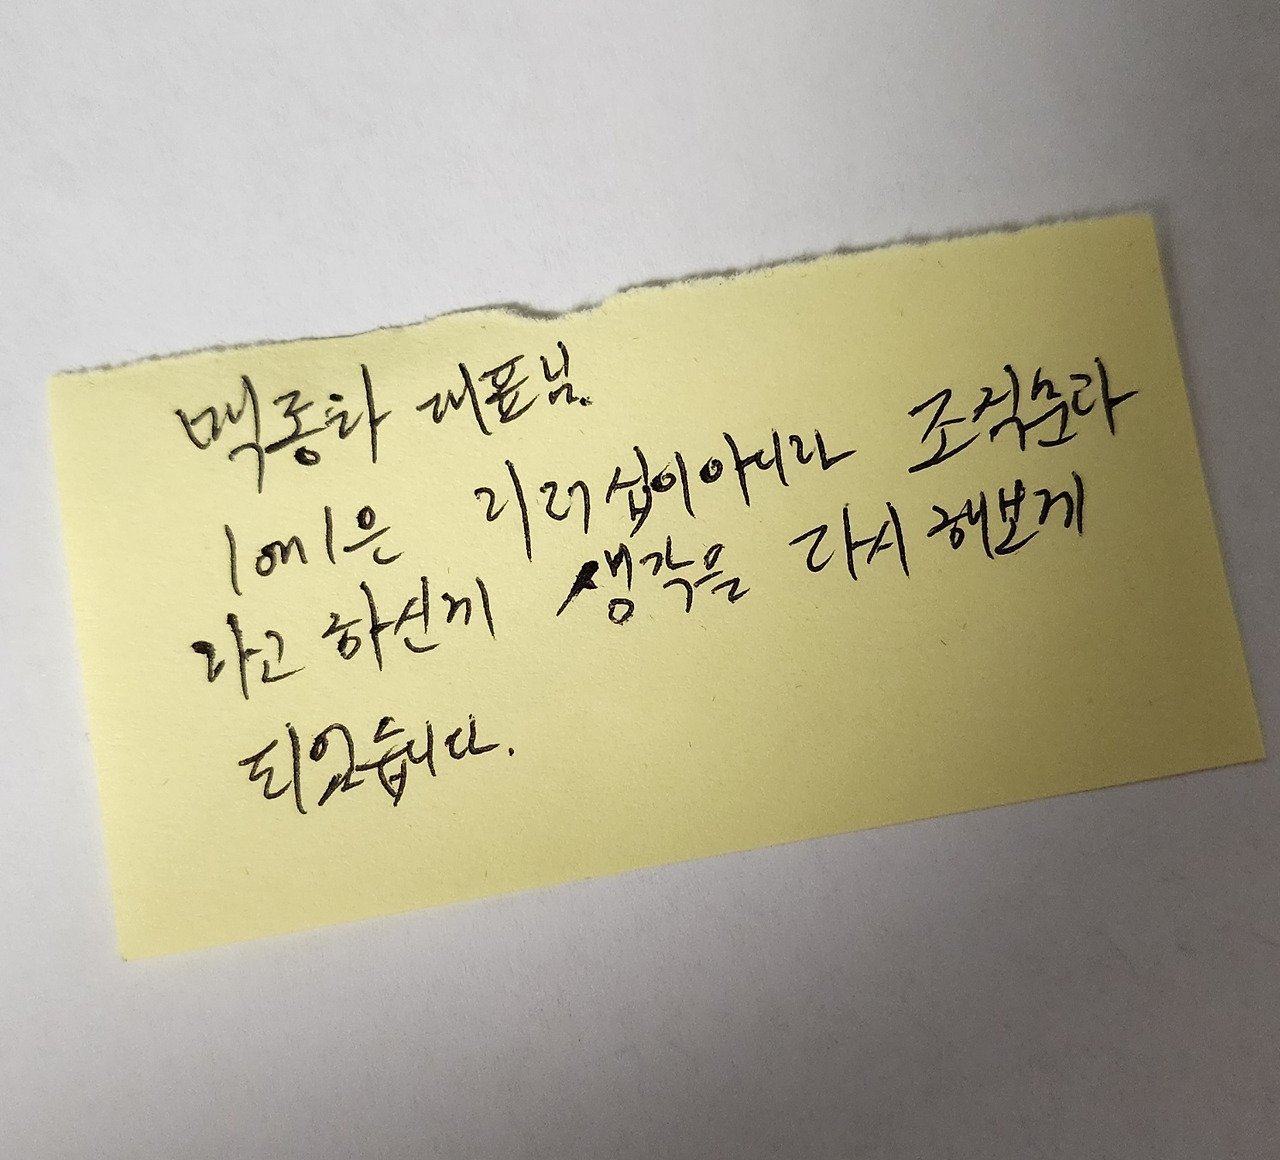 백종화 대표님.
1on1은 리더십이아니라 조직문화
라고 하신게 생각을 다시 해보게
되었습니다.